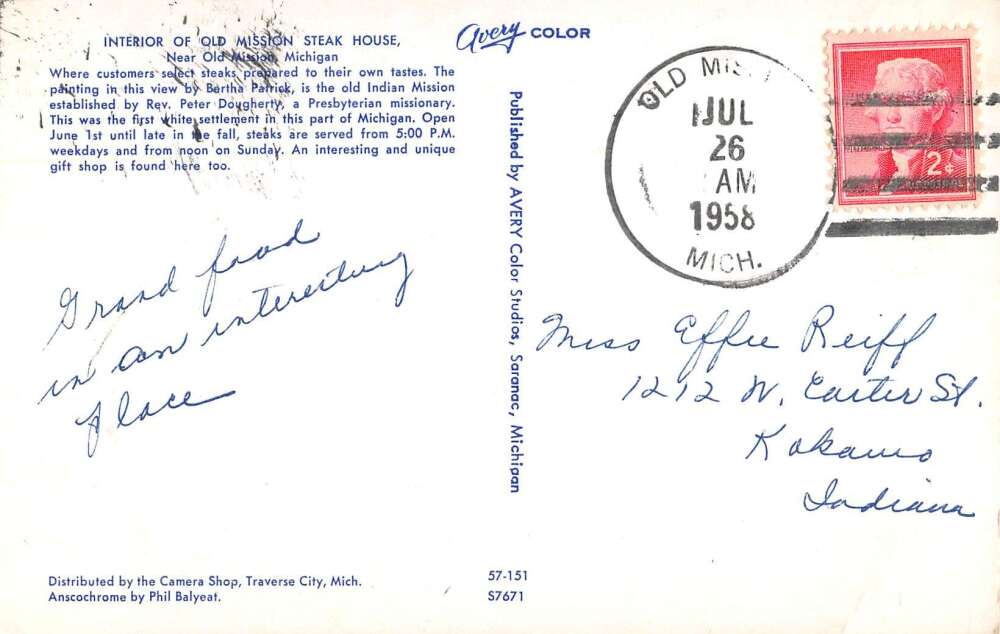 INTERIOR OF OLD MISSION STEAK HOUSE,
Near Old Mission, Michigan
Where customers select steaks prepared to their own tastes. The
painting in this view by Bertha Patrick, is the old Indian Mission
established by Rev. Peter Dougherty, a Presbyterian missionary.
This was the first white settlement in this part of Michigan. Open
June 1st until late in the fall, steaks are served from 5:00 P.M.
weekdays and from noon on Sunday. An interesting and unique
gift shop is found here too.
Avery COLOR
OLD MIS
JUL
26
AM
1958
MICH.
2¢
Grand food
in an interesting
place
Published by AVERY Color Studios, Saranac, Michigan
Miss Effie Reiff
1212 W. Carter St.
Kokomo
Indiana
Distributed by the Camera Shop, Traverse City, Mich.
Anscochrome by Phil Balyeat.
57-151
S7671